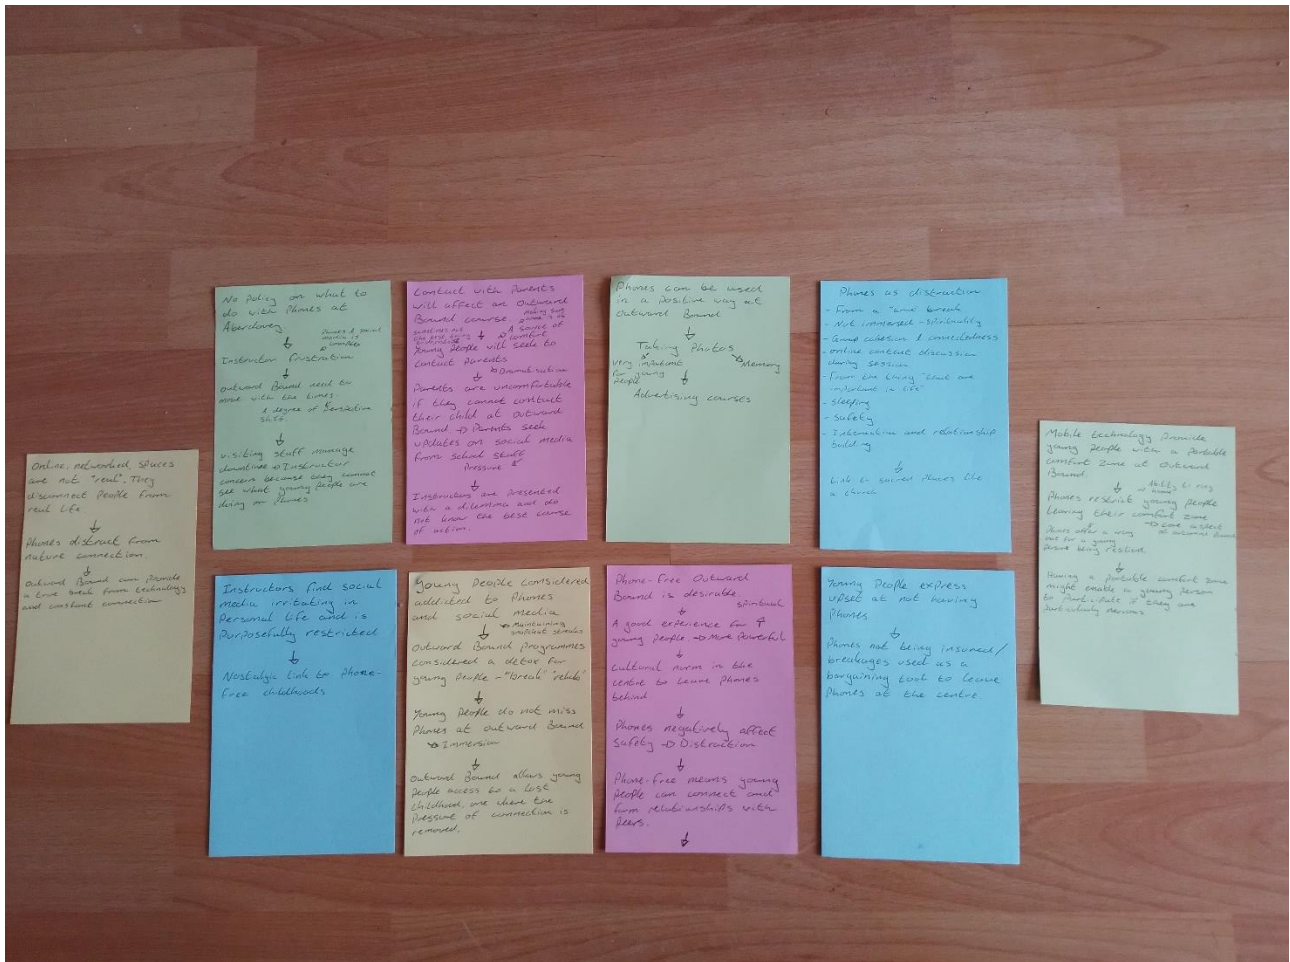 Online, networked, spaces
are not "real". They
disconnect People from
real life.
Phones distract from
nature connection.
Outward Bound can provide
a true break from technology
and constant connection
No Policy on what to
do with Phones at
Aberdovey
Phones & social
media is
complex
Instructor frustration
Outward Bound need to
move with the times.
A degree of
shift.
Visiting staff manage
downtime → Instructor
concern because they cannot
see what young People are
doing on Phones
Contact with Parents
will affect an Outward
Bound course.
A source of
comfort
Young People will seek to
contact Parents
Dramatisation
Parents are uncomfortable
if they cannot contact
their child at Outward
Bound → Parents seek
updates on social media
from school staff
Pressure
Instructors are Presented
with a dilemma and do
not know the best course
of action.
Phones can be used
in a Positive way at
Outward Bound
Taking Photos
very important
for young
People
Memory
Advertising courses
Phones as distraction
- From a "true" break
- Not immersed - spirituality
- Group cohesion & connectedness
- online content discussion
during session
- From the things "that are
important in life"
- Sleeping
- Safety
- Interaction and relationship
building
Link to sacred Places like
a church
Mobile technology Provide
young People with a Portable
comfort zone at Outward
Bound.
Ability to ring
home
Phones restrict young People
leaving their comfort zone
Phones offer a way
out for a young
Person being resilient
Having a Portable comfort zone
might enable a young Person
to Participate if they are
Particularly nervous
Instructors find social
media irritating in
Personal life and is
Purposefully restricted
Nostalgic link to Phone-
free childhoods
Young People considered
addicted to Phones
and social media
Maintaining
snapchat streaks
Outward Bound Programmes
considered a detox for
young People - "break"
Young People do not miss
Phones at Outward Bound
Immersion
Outward Bound allows young
People access to a lost
childhood, one where the
Pressure of connection is
removed.
Phone-Free Outward
Bound is desirable
spiritual
A good experience for
young People → More Powerful
Cultural norm in the
centre to leave Phones
behind
Phones negatively affect
Safety → Distraction
Phone-Free means young
People can connect and
form relationships with
Peers.
Young People express
upset at not having
Phones
Phones not being insured/
breakages used as a
bargaining tool to leave
Phones at the centre.